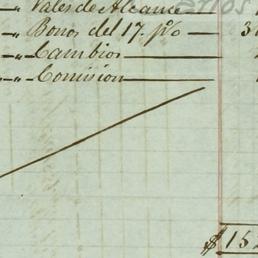 " " Vales de Alcance
" " Bonos del 17. p%
" " Cambios
" " Comision
$ 15